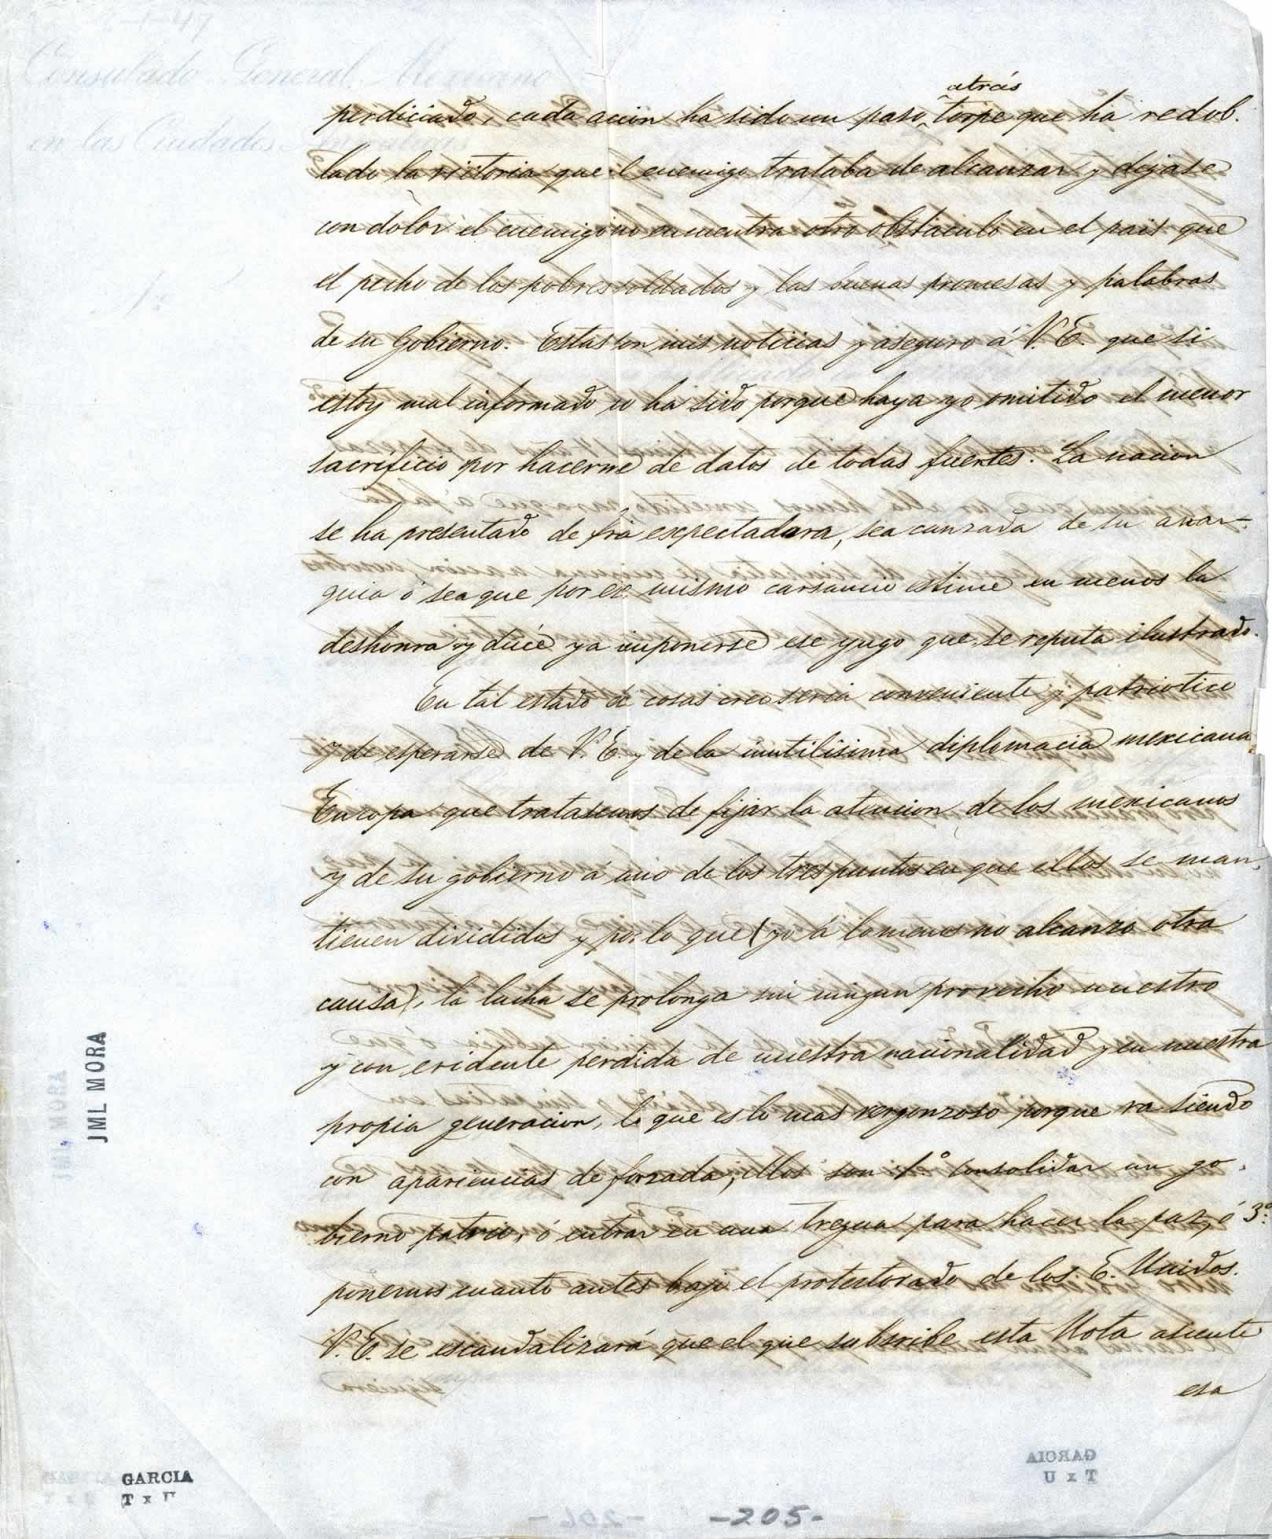 Consulado General Mexicano
en las Ciudades
atrás
perdiciado, cada acion ha sido un paso torpe que ha redob.
lado la victoria que el enemigo trataba de alcanzar y dejase
con dolor el enemigo no encuentra otro obstaculo en el pais que
el pecho de los pobres soldados y las buenas promesas y palabras
de su Gobierno. Estas son mis noticias y aseguro á V. E. que si
estoy mal informado no ha sido porque haya yo omitido el menor
sacrificio por hacerme de datos de todas fuentes. La nacion
se ha presentado de fria espectadora, sea canzada de su anar-
quia ó sea que por ese mismo cansancio estime en menos la
deshonra y dúce ya imponerse ese yugo que se reputa ilustrado.
En tal estado de cosas creo seria conveniente y patriotico
y de esperarse de V. E. y de la inutilisima diplomacia mexicana
Europa que tratasemos de fijar la atencion de los mexicanos
y de su gobierno á uno de los tres puntos en que ellos se man-
tienen divididos y por lo que (yo á lo menos no alcanzo otra
causa), la lucha se prolonga sin ningun provecho nuestro
y con evidente perdida de nuestra nacionalidad y en nuestra
propia generacion, lo que es lo mas vergonzoso porque va siendo
con apariencias de forzada; ellos son 1º consolidar un go-
bierno patrio, ó entrar en una tregua para hacer la paz, ó 3º
ponernos cuanto antes bajo el protectorado de los E. Unidos.
V. E. se escandalizará que el que subscribe esta Nota asiente
esa
JML MORA
GARCIA
T x U
GARCIA
T x U
-205-